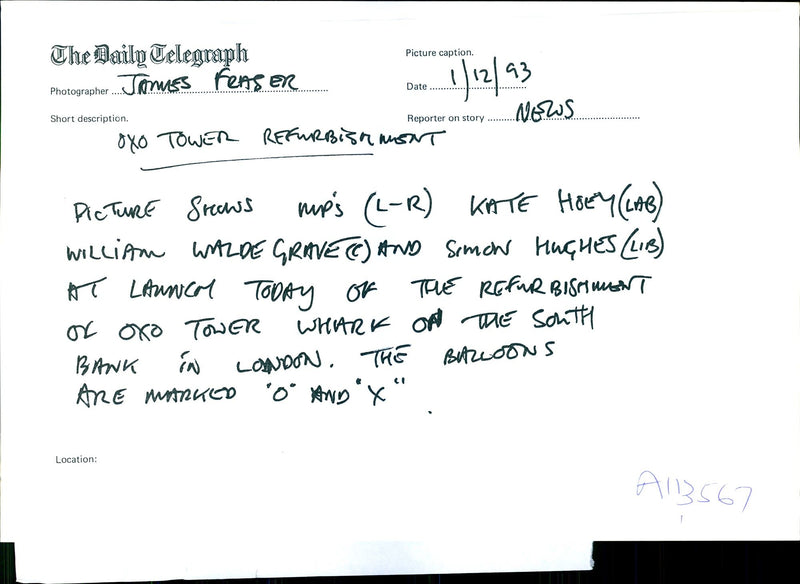 The Daily Telegraph
Picture caption.
Photographer JAMES FRASER
Date 1/12/93
Short description.
Reporter on story NEWS
OXO TOWER REFURBISHMENT
PICTURE SHOWS MP'S (L-R) KATE HOEY (LAB)
WILLIAM WALDEGRAVE (C) AND SIMON HUGHES (LIB)
AT LAUNCH TODAY OF THE REFURBISHMENT
OF OXO TOWER WHARF ON THE SOUTH
BANK IN LONDON. THE BALLOONS
ARE MARKED "O" AND "X".
Location:
A113567